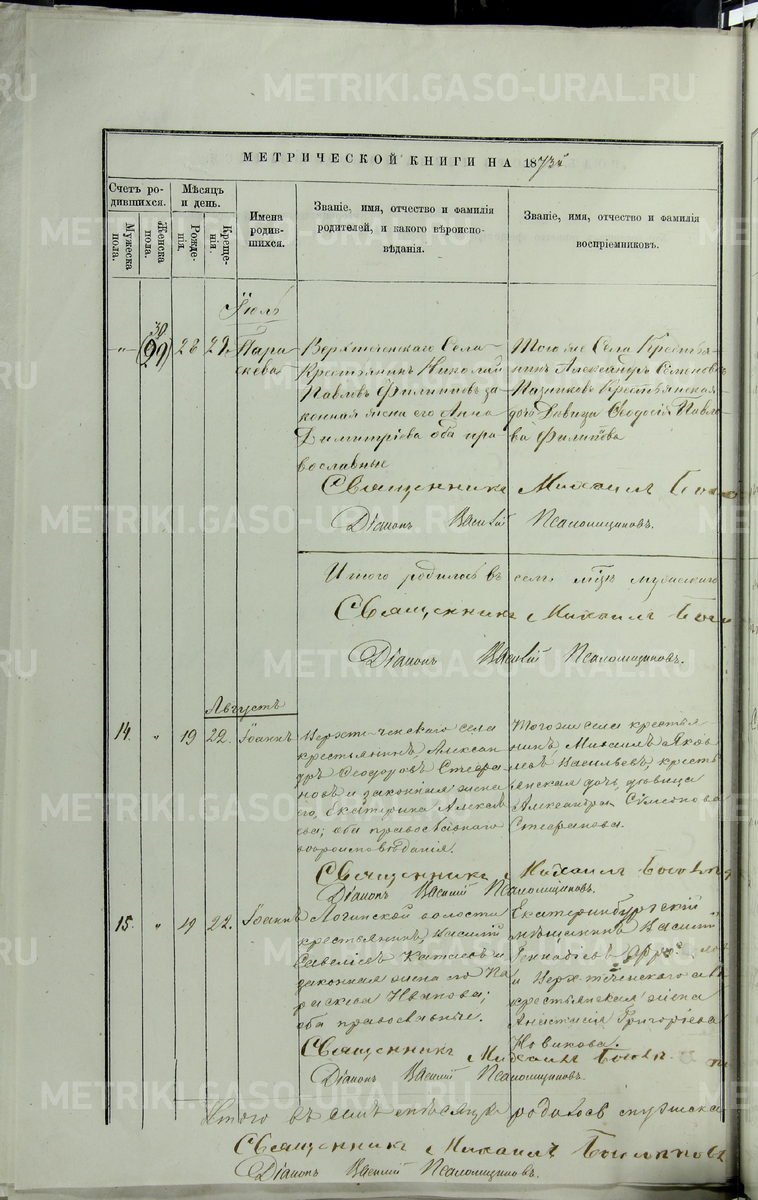 METRIKI.GASO-URAL.RU
МЕТРИЧЕСКОЙ КНИГИ НА 1873й
Счетъ ро-
дившихся.
Мужеска
пола.
Женска
пола.
Мѣсяцъ
и день.
Рожде-
нія.
Креще-
нія.
Имена
родив-
шихся.
Званіе, имя, отчество и фамилія
родителей, и какого вѣроиспо-
вѣданія.
Званіе, имя, отчество и фамилія
воспріемниковъ.
Іюль
30
29
28 29. Пара-
скева
Верхтеченскаго Села
Крестьянинъ Николай
Павловъ Филиповъ за-
конная жена его Анна
Димитріева оба пра-
вославные
Того же Села Крестья-
нинъ Александръ Семеновъ
Крестьянская
дочь Дѣвица Ѳеодосія Павло-
ва Филипова
Священникъ Михаилъ
Діаконъ Василій Псаломщиковъ.
Итого родилось въ семъ мцѣ мужескаго
Священникъ Михаилъ
Діаконъ Василій Псаломщиковъ.
Августъ
14. " 19 22. Іоаннъ
Верхте-ченскаго села
крестьянинъ, Алексан-
дръ Ѳеодоровъ Стефа-
новъ и законная жена
его, Екатерина Алексѣ-
ева; оба православнаго
вѣроисповѣданія.
Того же села крестья-
нинъ Михаилъ Яков-
левъ Васильевъ, кресть-
янская дочь, дѣвица
Александра Симеонова
Стефанова.
Священникъ Михаилъ
Діаконъ Василій Псаломщиковъ.
15. " 19 22. Іоаннъ
волости
крестьянинъ, Василій
Савеліевъ и
законная жена его Па-
раскева Иванова;
оба православные.
Екатеринбургскій
мѣщанинъ Василій
Геннадіевъ
и Верхтеченскаго
крестьянская жена
Анастасія Григоріева
Новикова.
Священникъ Михаилъ
Діаконъ Василій Псаломщиковъ.
Итого въ семъ мѣсяцѣ родилось мужеска
Священникъ Михаилъ
Діаконъ Василій Псаломщиковъ.